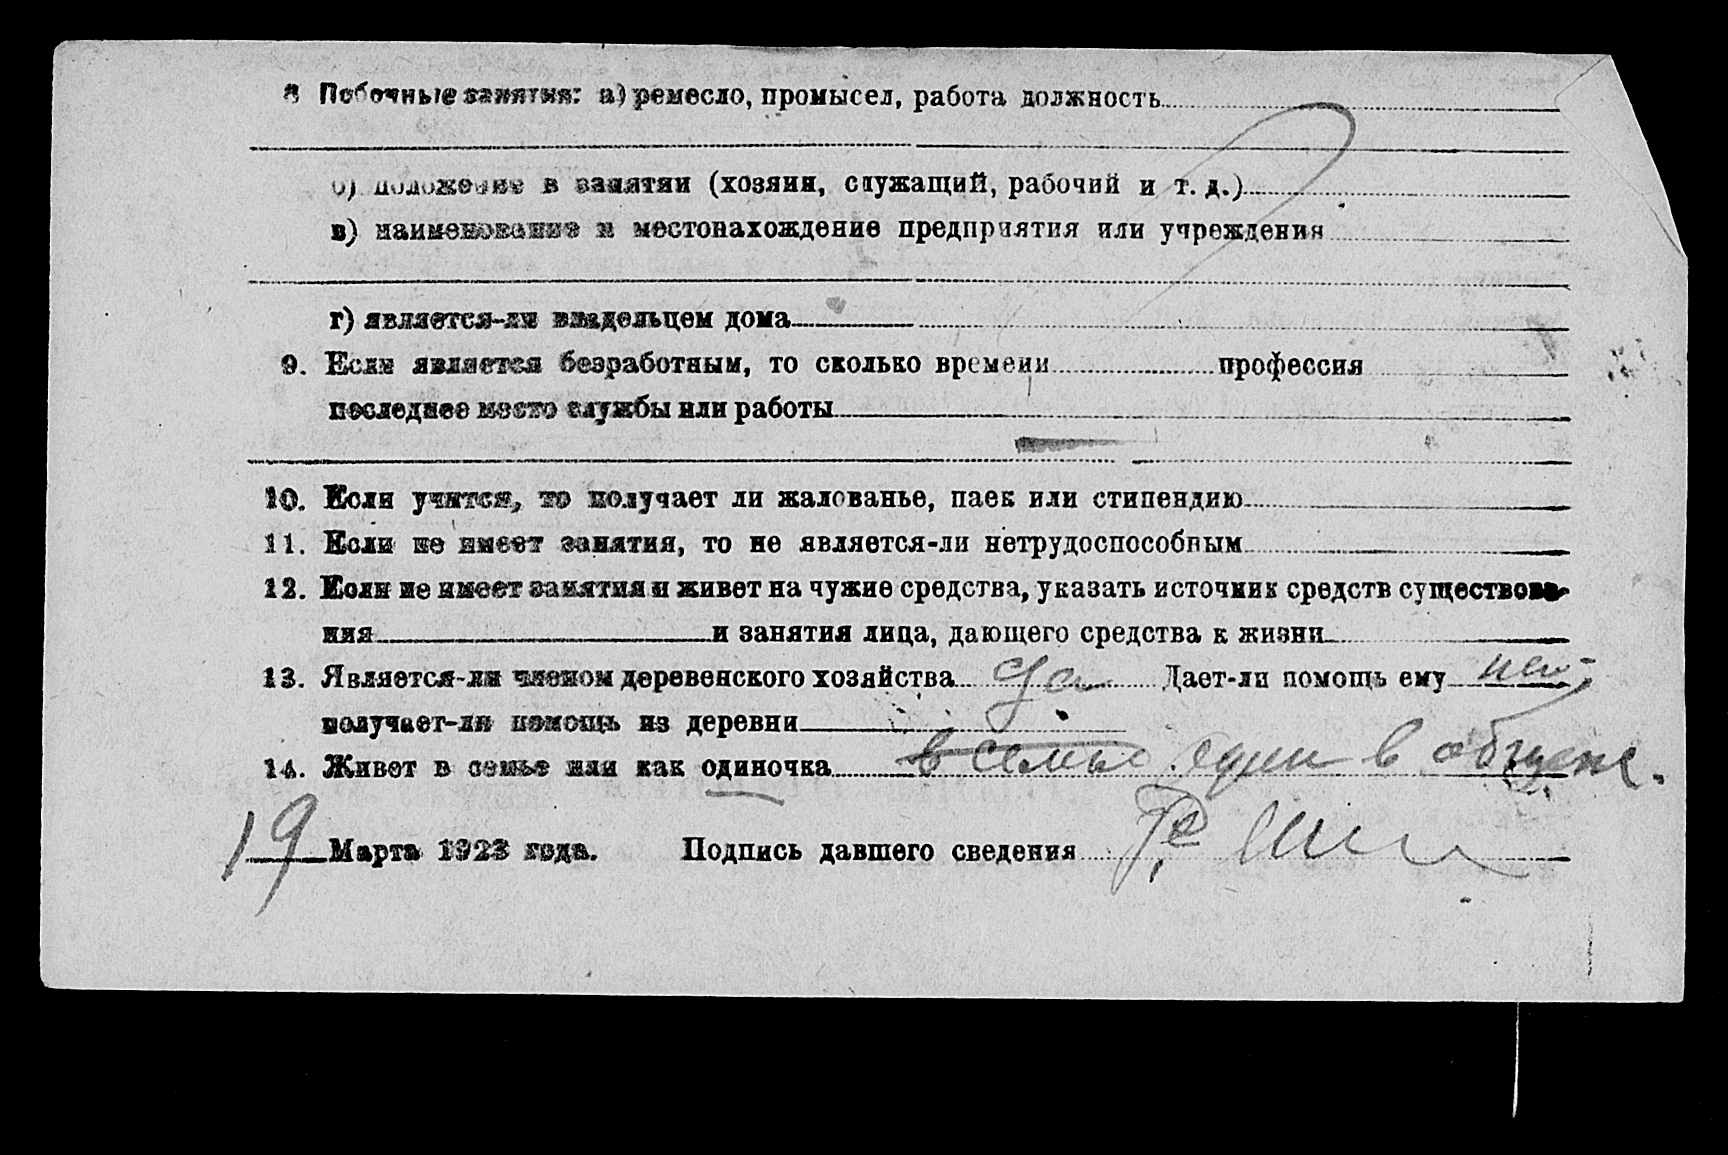 8 Побочные занятия: а) ремесло, промысел, работа должность
б) положение в занятии (хозяин, служащий, рабочий и т. д.)
в) наименование и местонахождение предприятия или учреждения
г) является-ли владельцем дома
9. Если является безработным, то сколько времени профессия
последнее место службы или работы
10. Если учится, то получает ли жалованье, паек или стипендию
11. Если не имеет занятия, то не является-ли нетрудоспособным
12. Если не имеет занятия и живет на чужие средства, указать источник средств существова-
ния и занятия лица, дающего средства к жизни
13. Является-ли членом деревенского хозяйства да Дает-ли помощь ему нет
получает-ли помощь из деревни
14. Живет в семье или как одиночка в семье один в общеж.
19 Марта 1923 года. Подпись давшего сведения